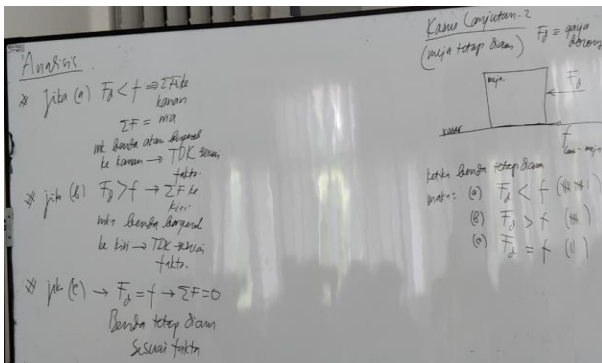 Analisis
* Jika (a) Fd < f ⇒ ΣF ke
kanan
ΣF = ma
mk benda akan bergerak
ke kanan → TDK sesuai
fakta.
* jika (b) Fd > f → ΣF ke
kiri
mka benda bergerak
ke kiri → TDK sesuai
fakta.
* jk (c) → Fd = f → ΣF = 0
Benda tetap diam
Sesuai fakta
Kasus Lanjutan-2
(meja tetap diam)
Fd = gaya
dorong
meja
Fd
kasar
f
ketika benda tetap diam
maka: (a) Fd < f
(b) Fd > f
Fd = f (11)